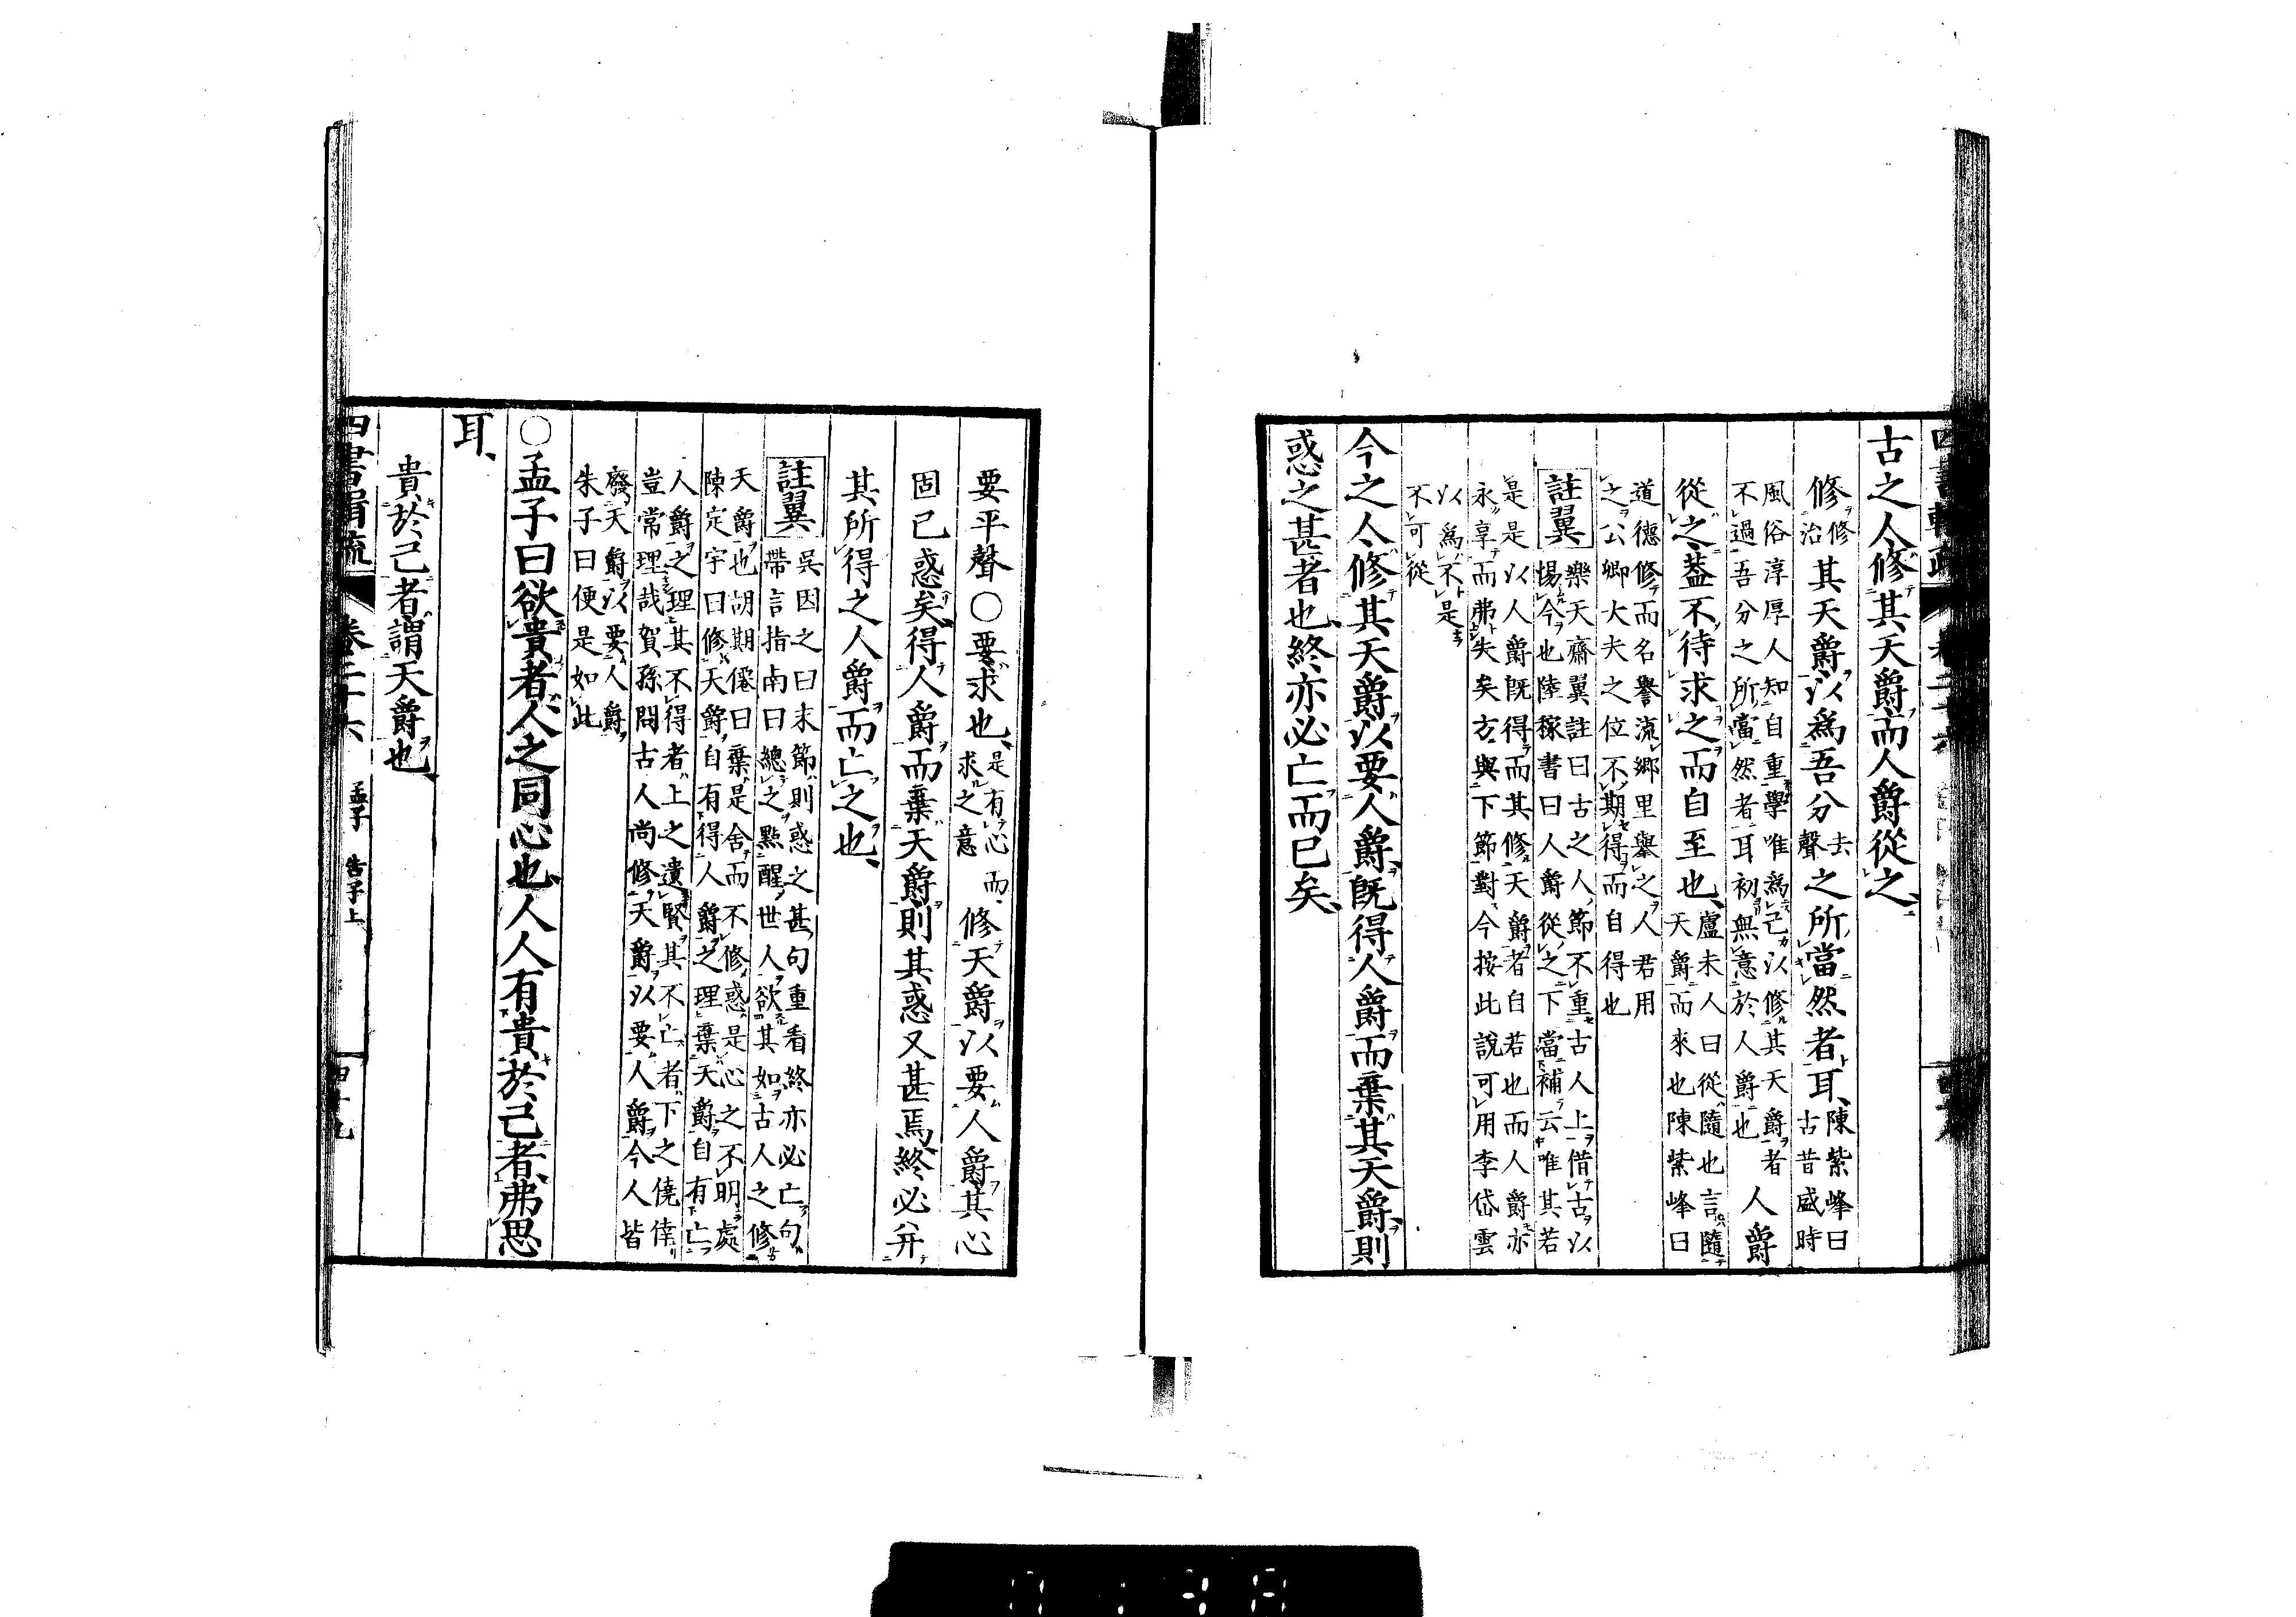 古之人修其天爵而人爵從之
修修治其天爵以為吾分去聲之所當然者耳陳紫峰曰古昔盛時
風俗淳厚人知自重學唯為己以修其天爵者不過吾分之所當然者耳初無意於人爵也人爵
從之蓋不待求之而自至也盧未人曰從隨也言隨天爵而來也陳紫峰曰
道德修而名譽流鄉里舉之人君用之公卿大夫之位不期得而自得也
註翼樂天齋翼註曰古之人節不重古人上借古以惕今也陸稼書曰人爵從之下當補云唯其若
是是以人爵既得而其修天爵者自若也而人爵亦永享而弗失矣方與下節對今按此說可用李岱雲
以為不是不可從
今之人修其天爵以要人爵既得人爵而棄其天爵則
惑之甚者也終亦必亡而已矣
要平聲○要求也是有心而求之意修天爵以要人爵其心
固已惑矣得人爵而棄天爵則其惑又甚焉終必并
其所得之人爵而亡之也
註翼吳因之曰末節則惑之甚句重看終亦必亡句帶言指南曰總之點醒世人欲其如古人之修
天爵也胡期僊曰棄是舍而不修惑是心之不明處陳定宇曰修天爵自有得人爵之理棄天爵自有亡
人爵之理其不得者上之遺賢其不亡者下之僥倖豈常理哉賀孫問古人尚修天爵以要人爵今人皆
廢天爵以要人爵朱子曰便是如此
○孟子曰欲貴者人之同心也人人有貴於己者弗思
耳
貴於己者謂天爵也
卷二十六 孟子 告子上